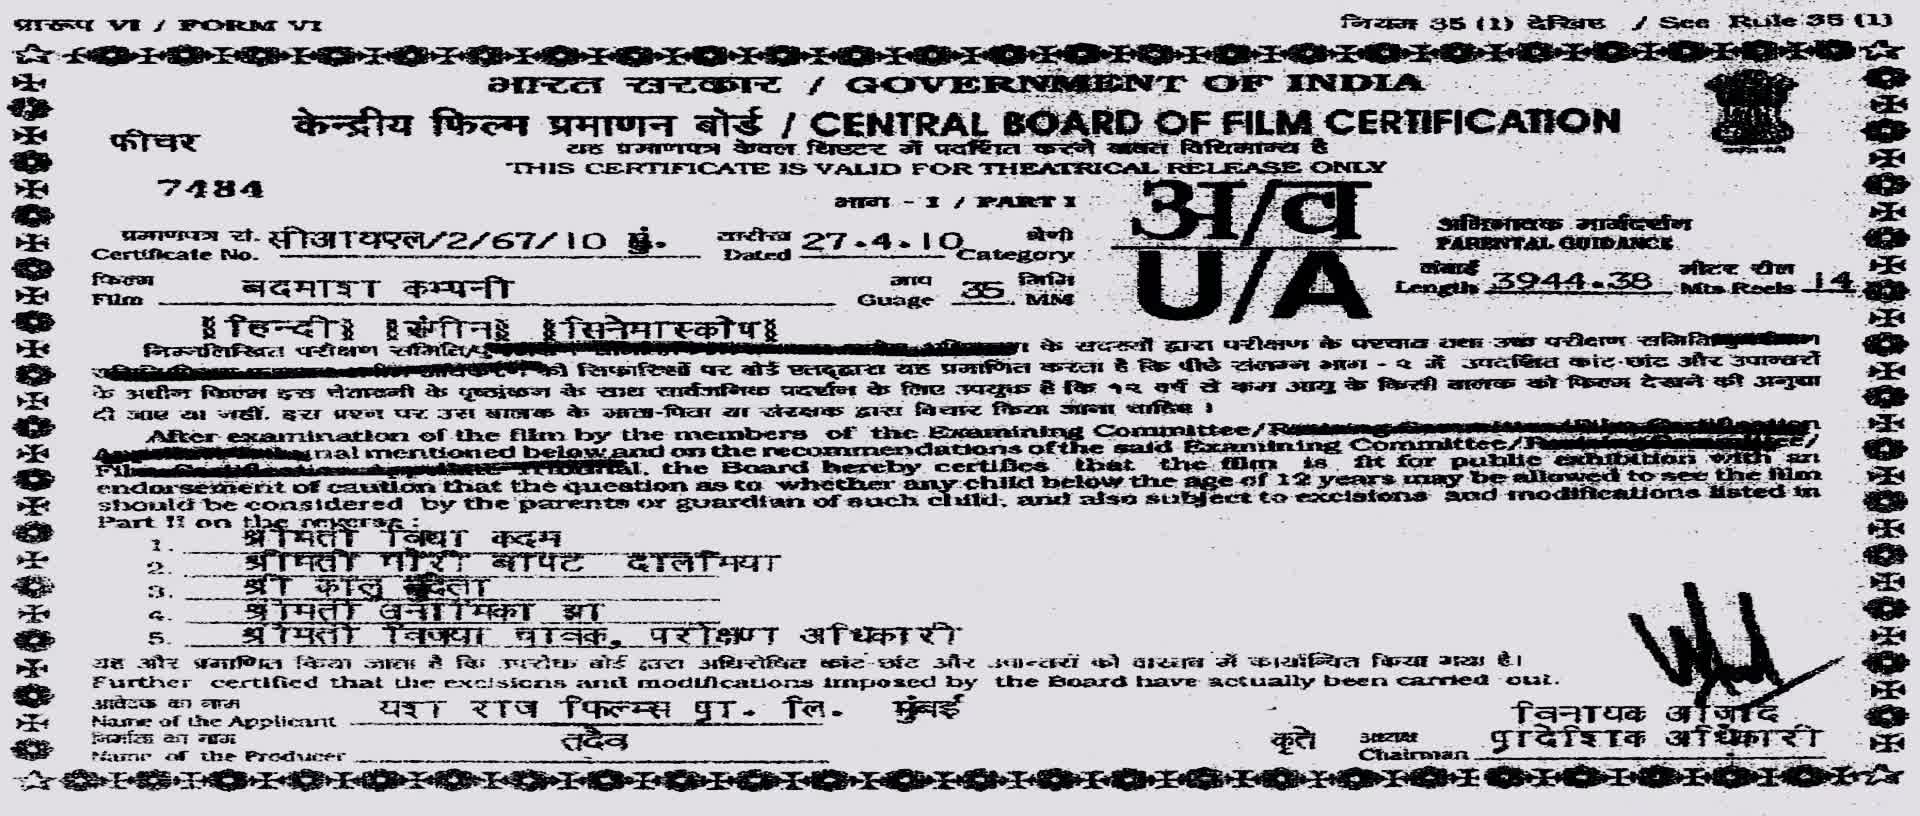 प्रारूप VI / FORM VI
नियम 35 (1) देखिए / See Rule 35 (1)
भारत सरकार / GOVERNMENT OF INDIA
केन्द्रीय फिल्म प्रमाणन बोर्ड / CENTRAL BOARD OF FILM CERTIFICATION
फीचर
यह प्रमाणपत्र केवल थिएटर में प्रदर्शित करने बाबत विधिमान्य है
THIS CERTIFICATE IS VALID FOR THEATRICAL RELEASE ONLY
7484
भाग - I / PART I
अ/व
अभिभावक मार्गदर्शन
PARENTAL GUIDANCE
प्रमाणपत्र सं. सीआयएल/2/67/10 मुं. तारीख 27.4.10 श्रेणी
Certificate No. Dated Category
U/A
फिल्म बदमाश कम्पनी माप 35 मिमि
Film Guage MM
लंबाई 3944.38 मीटर रील 14
Length Mts Reels
हिन्दी रंगीन सिनेमास्कोप
निम्नलिखित परीक्षण समिति/ के सदस्यों द्वारा परीक्षण के पश्चात तथा उक्त परीक्षण समिति
की सिफारिशों पर बोर्ड एतद्द्वारा यह प्रमाणित करता है कि पीछे संलग्न भाग - २ में उपदर्शित कांट-छांट और उपान्तरों
के अधीन फिल्म इस चेतावनी के पृष्ठांकन के साथ सार्वजनिक प्रदर्शन के लिए उपयुक्त है कि १२ वर्ष से कम आयु के किसी बालक को फिल्म देखने की अनुज्ञा
दी जाए या नहीं, इस प्रश्न पर उस बालक के माता-पिता या संरक्षक द्वारा विचार किया जाना चाहिए ।
After examination of the film by the members of the Examining Committee/
mentioned below and on the recommendations of the said Examining Committee/
the Board hereby certifies that the film is fit for public exhibition with an
endorsement of caution that the question as to whether any child below the age of 12 years may be allowed to see the film
should be considered by the parents or guardian of such child, and also subject to excisions and modifications listed in
Part II on the reverse :
1. श्रीमती विद्या कदम
2. श्रीमती गौरी बापट दालमिया
3. श्री कालु
4. श्रीमती अनामिका झा
5. श्रीमती विजया चावक, परीक्षण अधिकारी
यह और प्रमाणित किया जाता है कि उपरोक्त बोर्ड द्वारा अधिरोपित कांट-छांट और उपान्तरों को वास्तव में कार्यान्वित किया गया है।
Further certified that the excisions and modifications imposed by the Board have actually been carried out.
आवेदक का नाम यश राज फिल्म्स प्रा. लि. मुंबई
Name of the Applicant
विनायक आजाद
निर्माता का नाम तदैव
Name of the Producer
कृते अध्यक्ष प्रादेशिक अधिकारी
Chairman